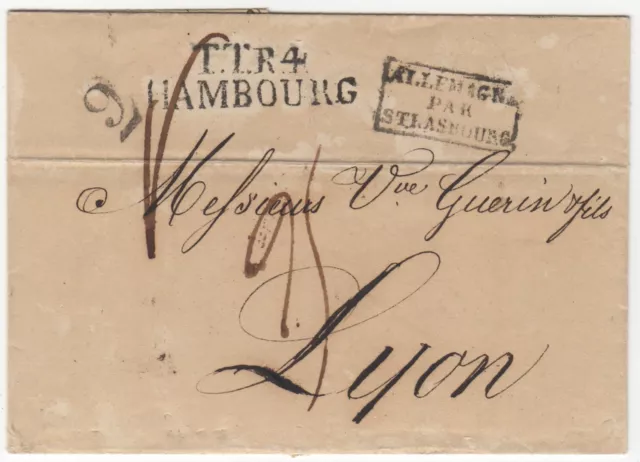 T.T.R.4
HAMBOURG
ALLEMAGNE
PAR
STRASBOURG
Messieurs Vve Guerin & fils
Lyon